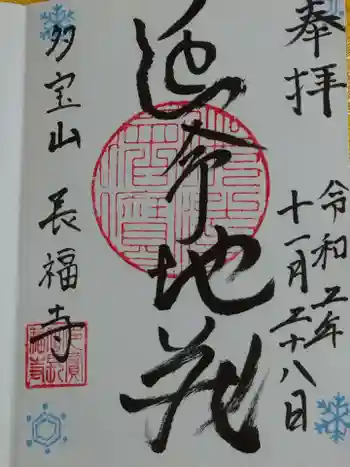 奉拝
令和五年
十一月二十八日
延命地蔵
多宝山 長福寺